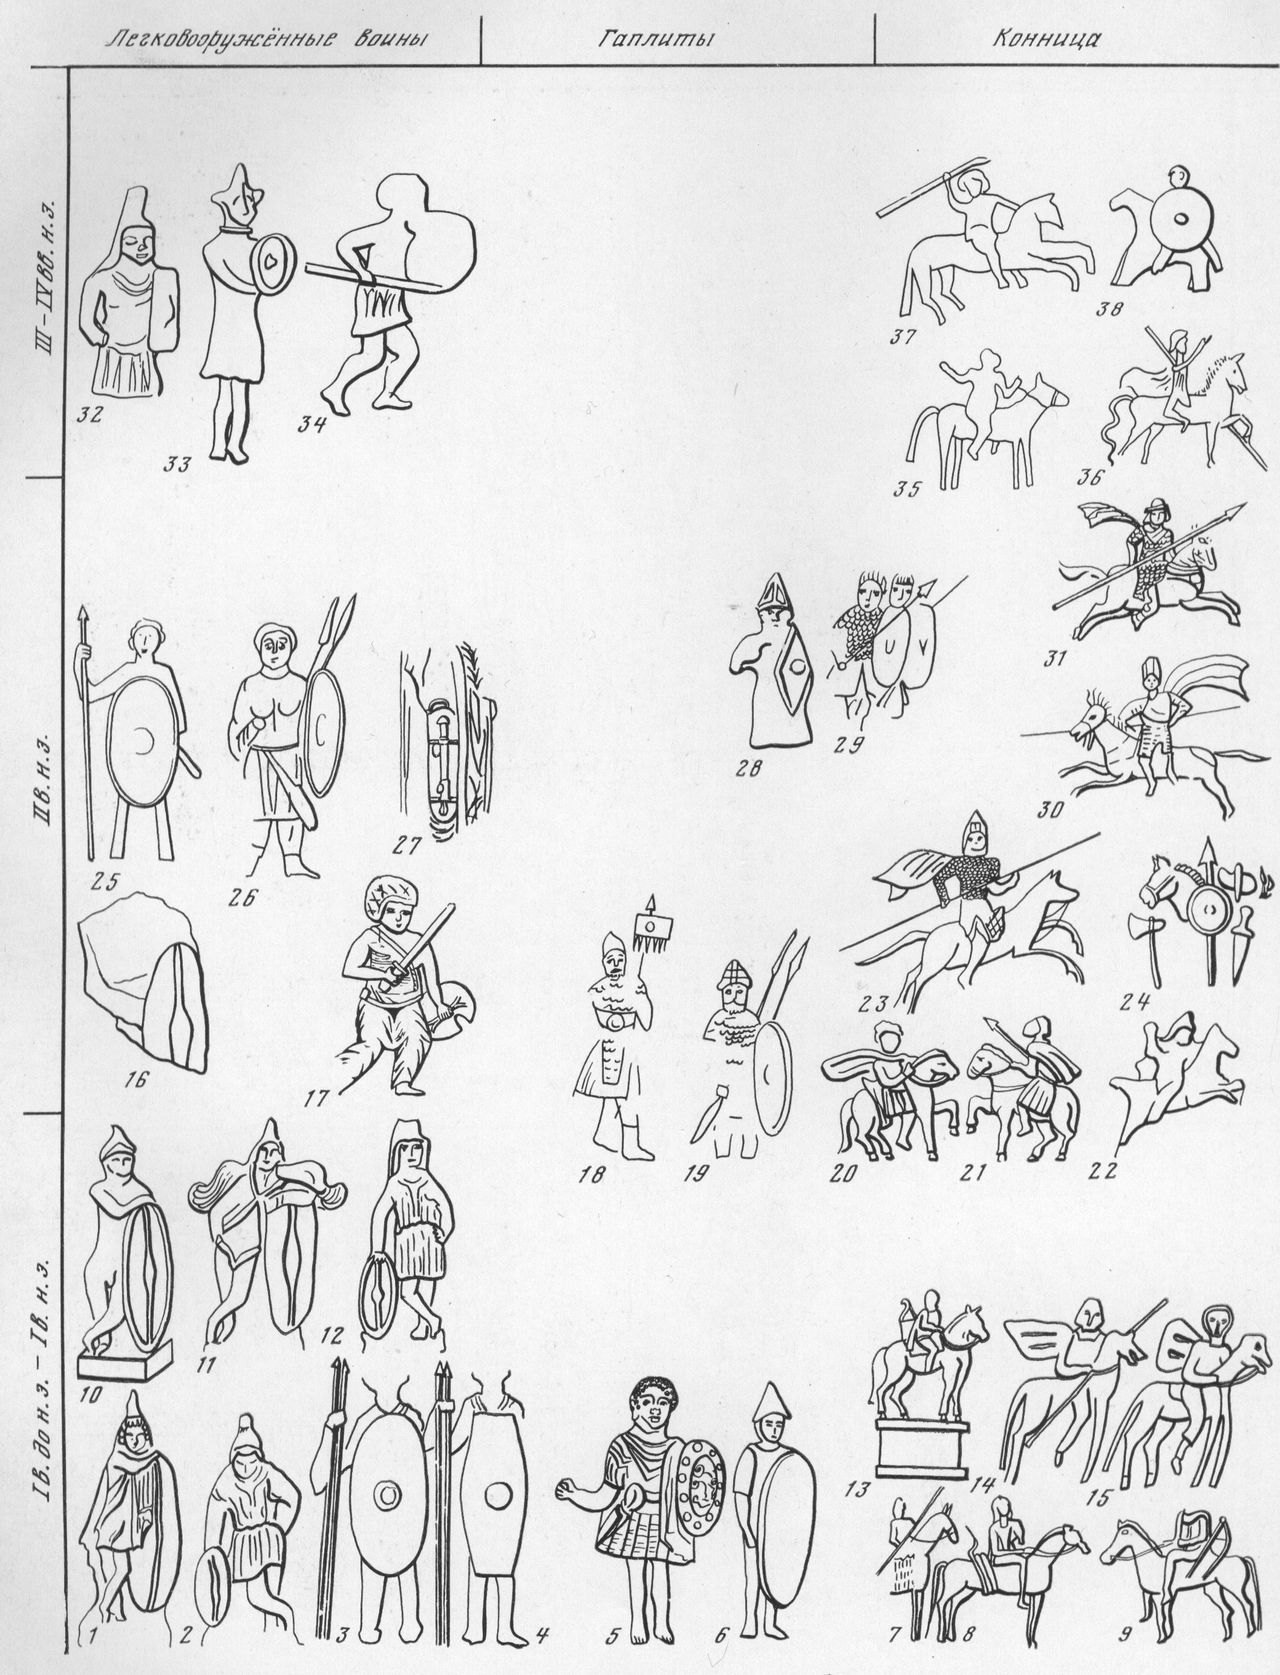 Легковооружённые воины
Гаплиты
Конница
III–IVвв. н.э.
32
33
34
37
38
35
36
IIв. н.э.
31
28
29
30
25
26
27
23
24
16
17
18
19
20
21
22
Iв. до н.э. – Iв. н.э.
10
11
12
13
14
15
1
2
3
4
5
6
7
8
9
U V